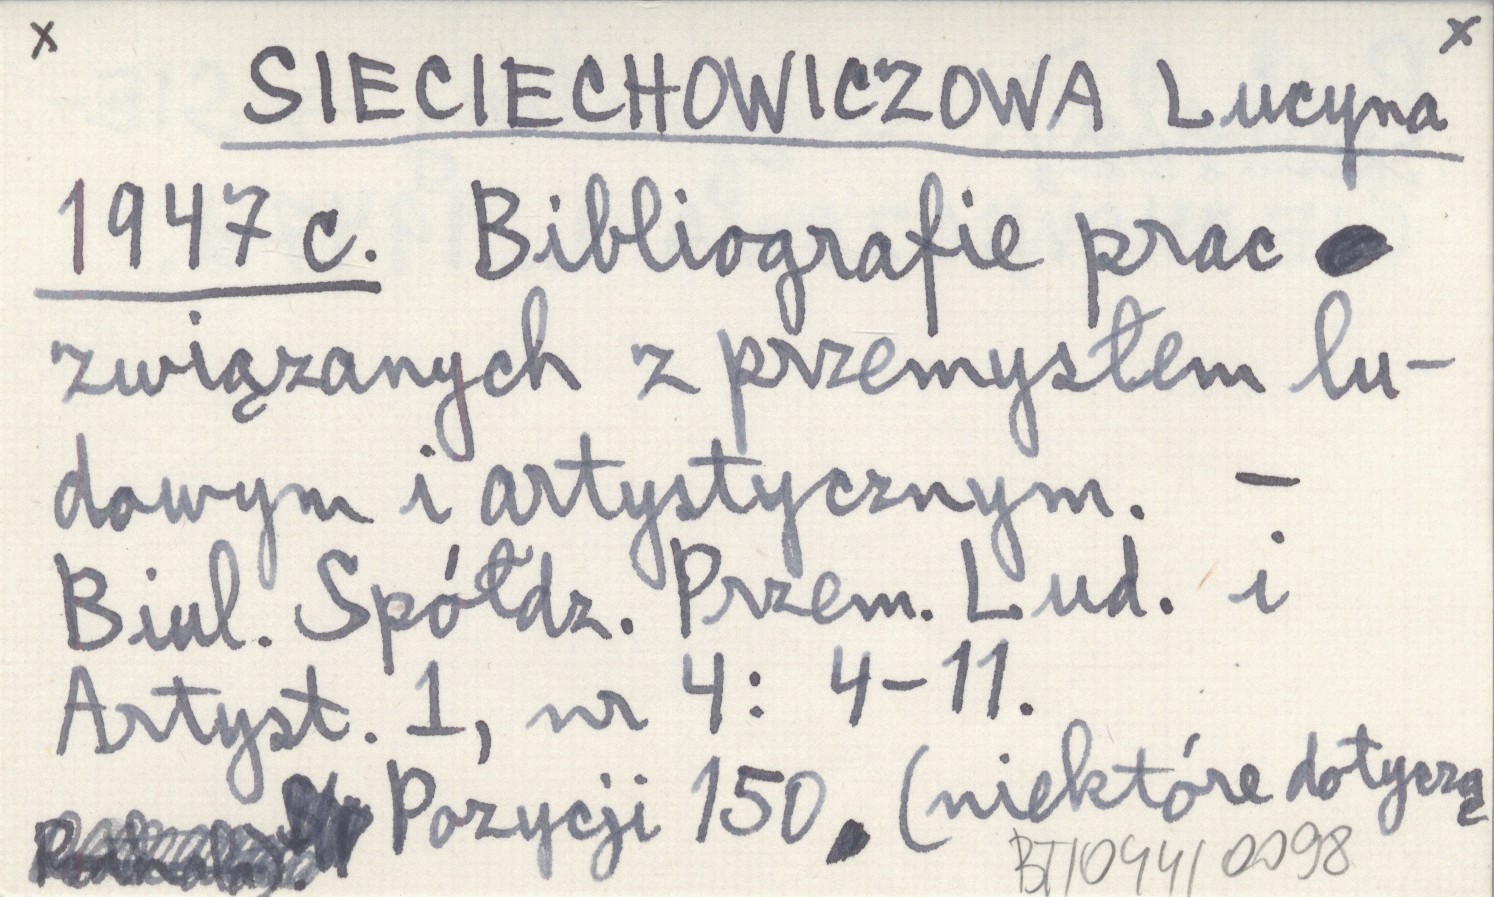 x x
SIECIECHOWICZOWA Lucyna
1947 c. Bibliografie prac
związanych z przemysłem lu-
dowym i artystycznym. –
Biul. Spółdz. Przem. Lud. i
Artyst. 1, nr 4: 4–11.
Pozycji 150. (niektóre dotyczą
BT/044/0098